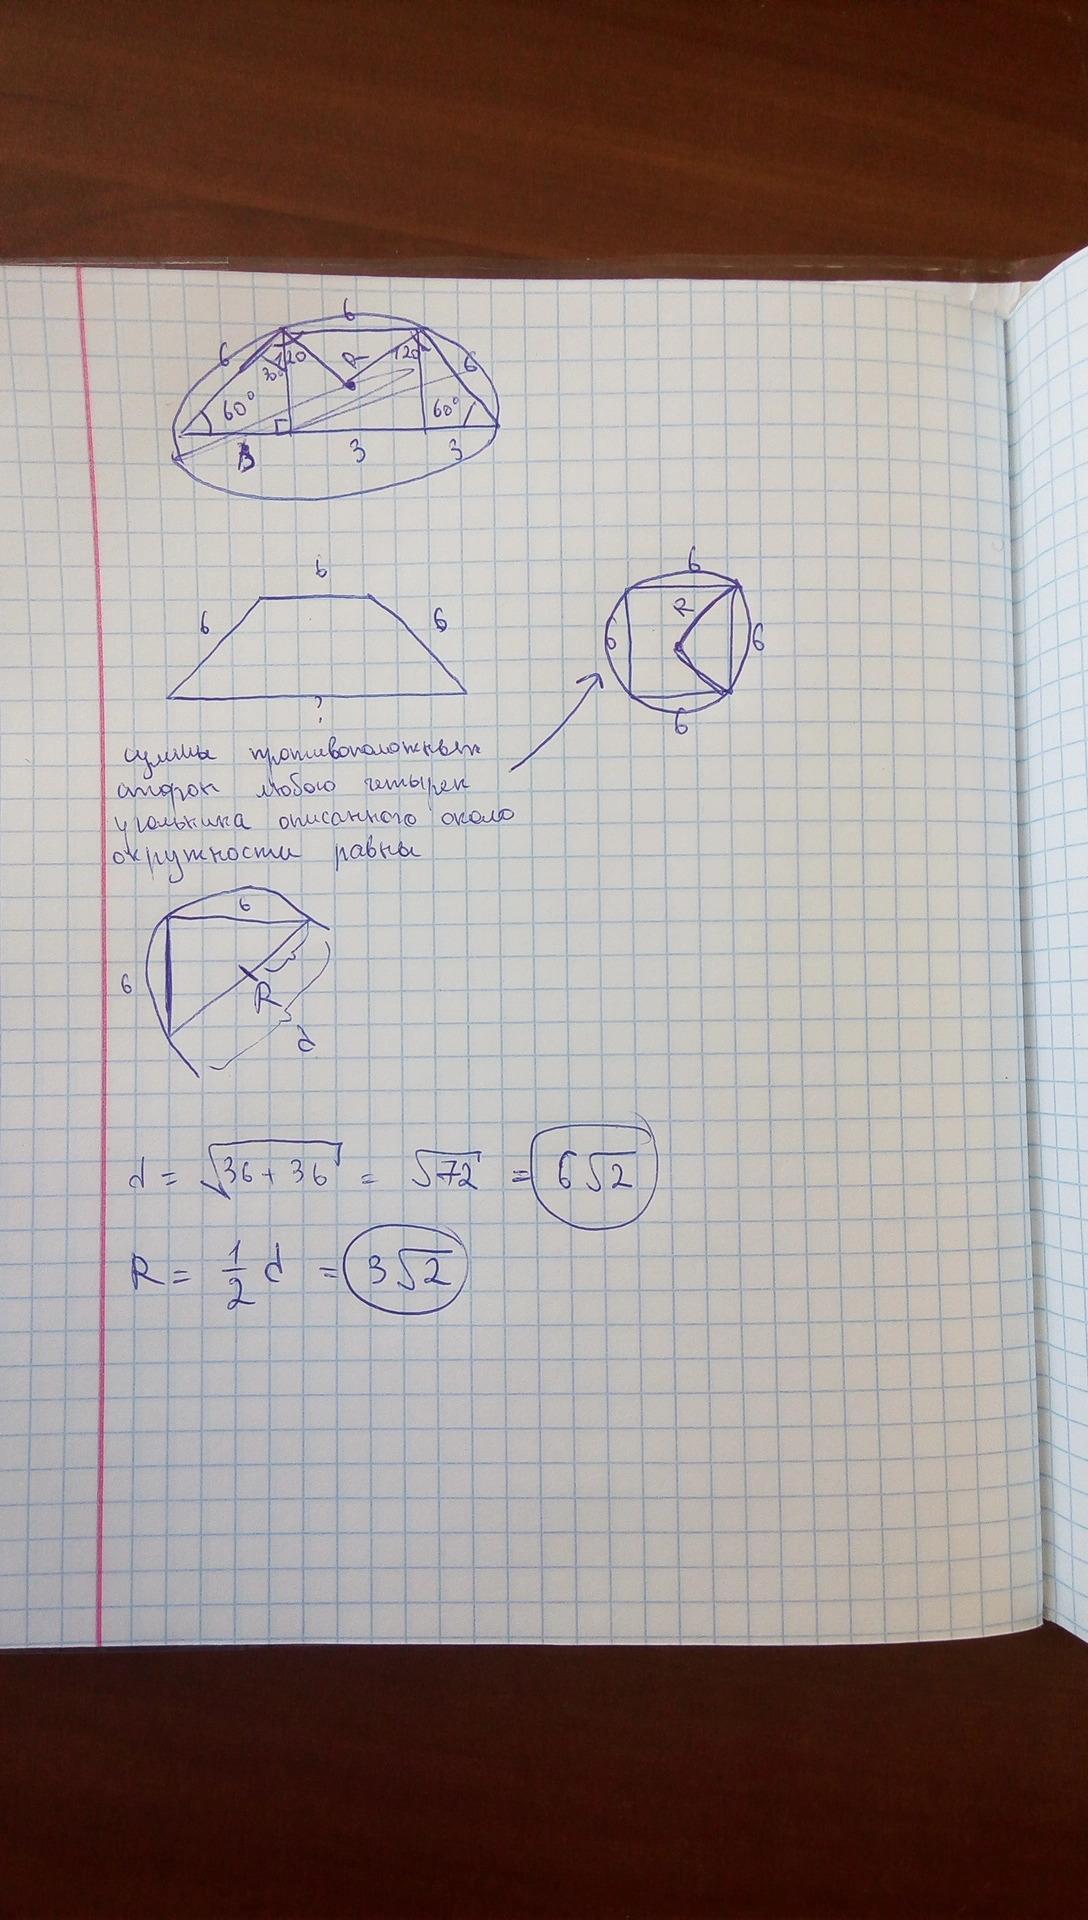 6
6 30° 120 R 120° 6
60° 60°
3 3 3
6
6 6
?
6
6 R 6
6
суммы противоположных
сторон любого четырех
угольника описанного около
окружности равны
6
6 R
d
d = √36 + 36 = √72 = 6√2
R = 1/2 d = 3√2